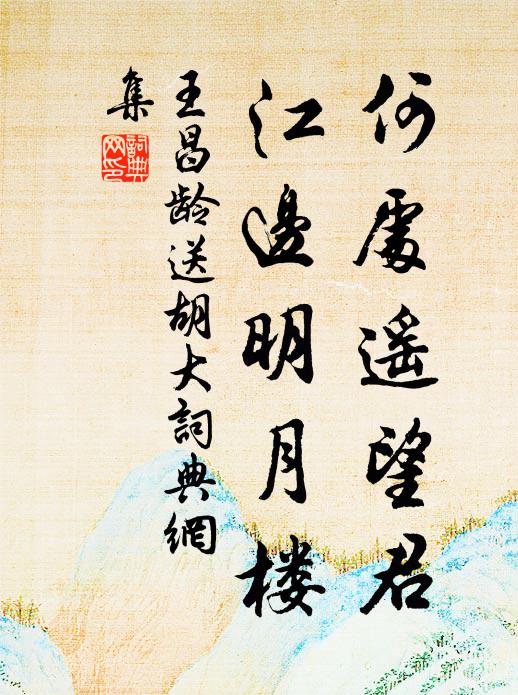 何處遥望君
江邊明月楼
王昌龄送胡大詞典網
集
詞典網印